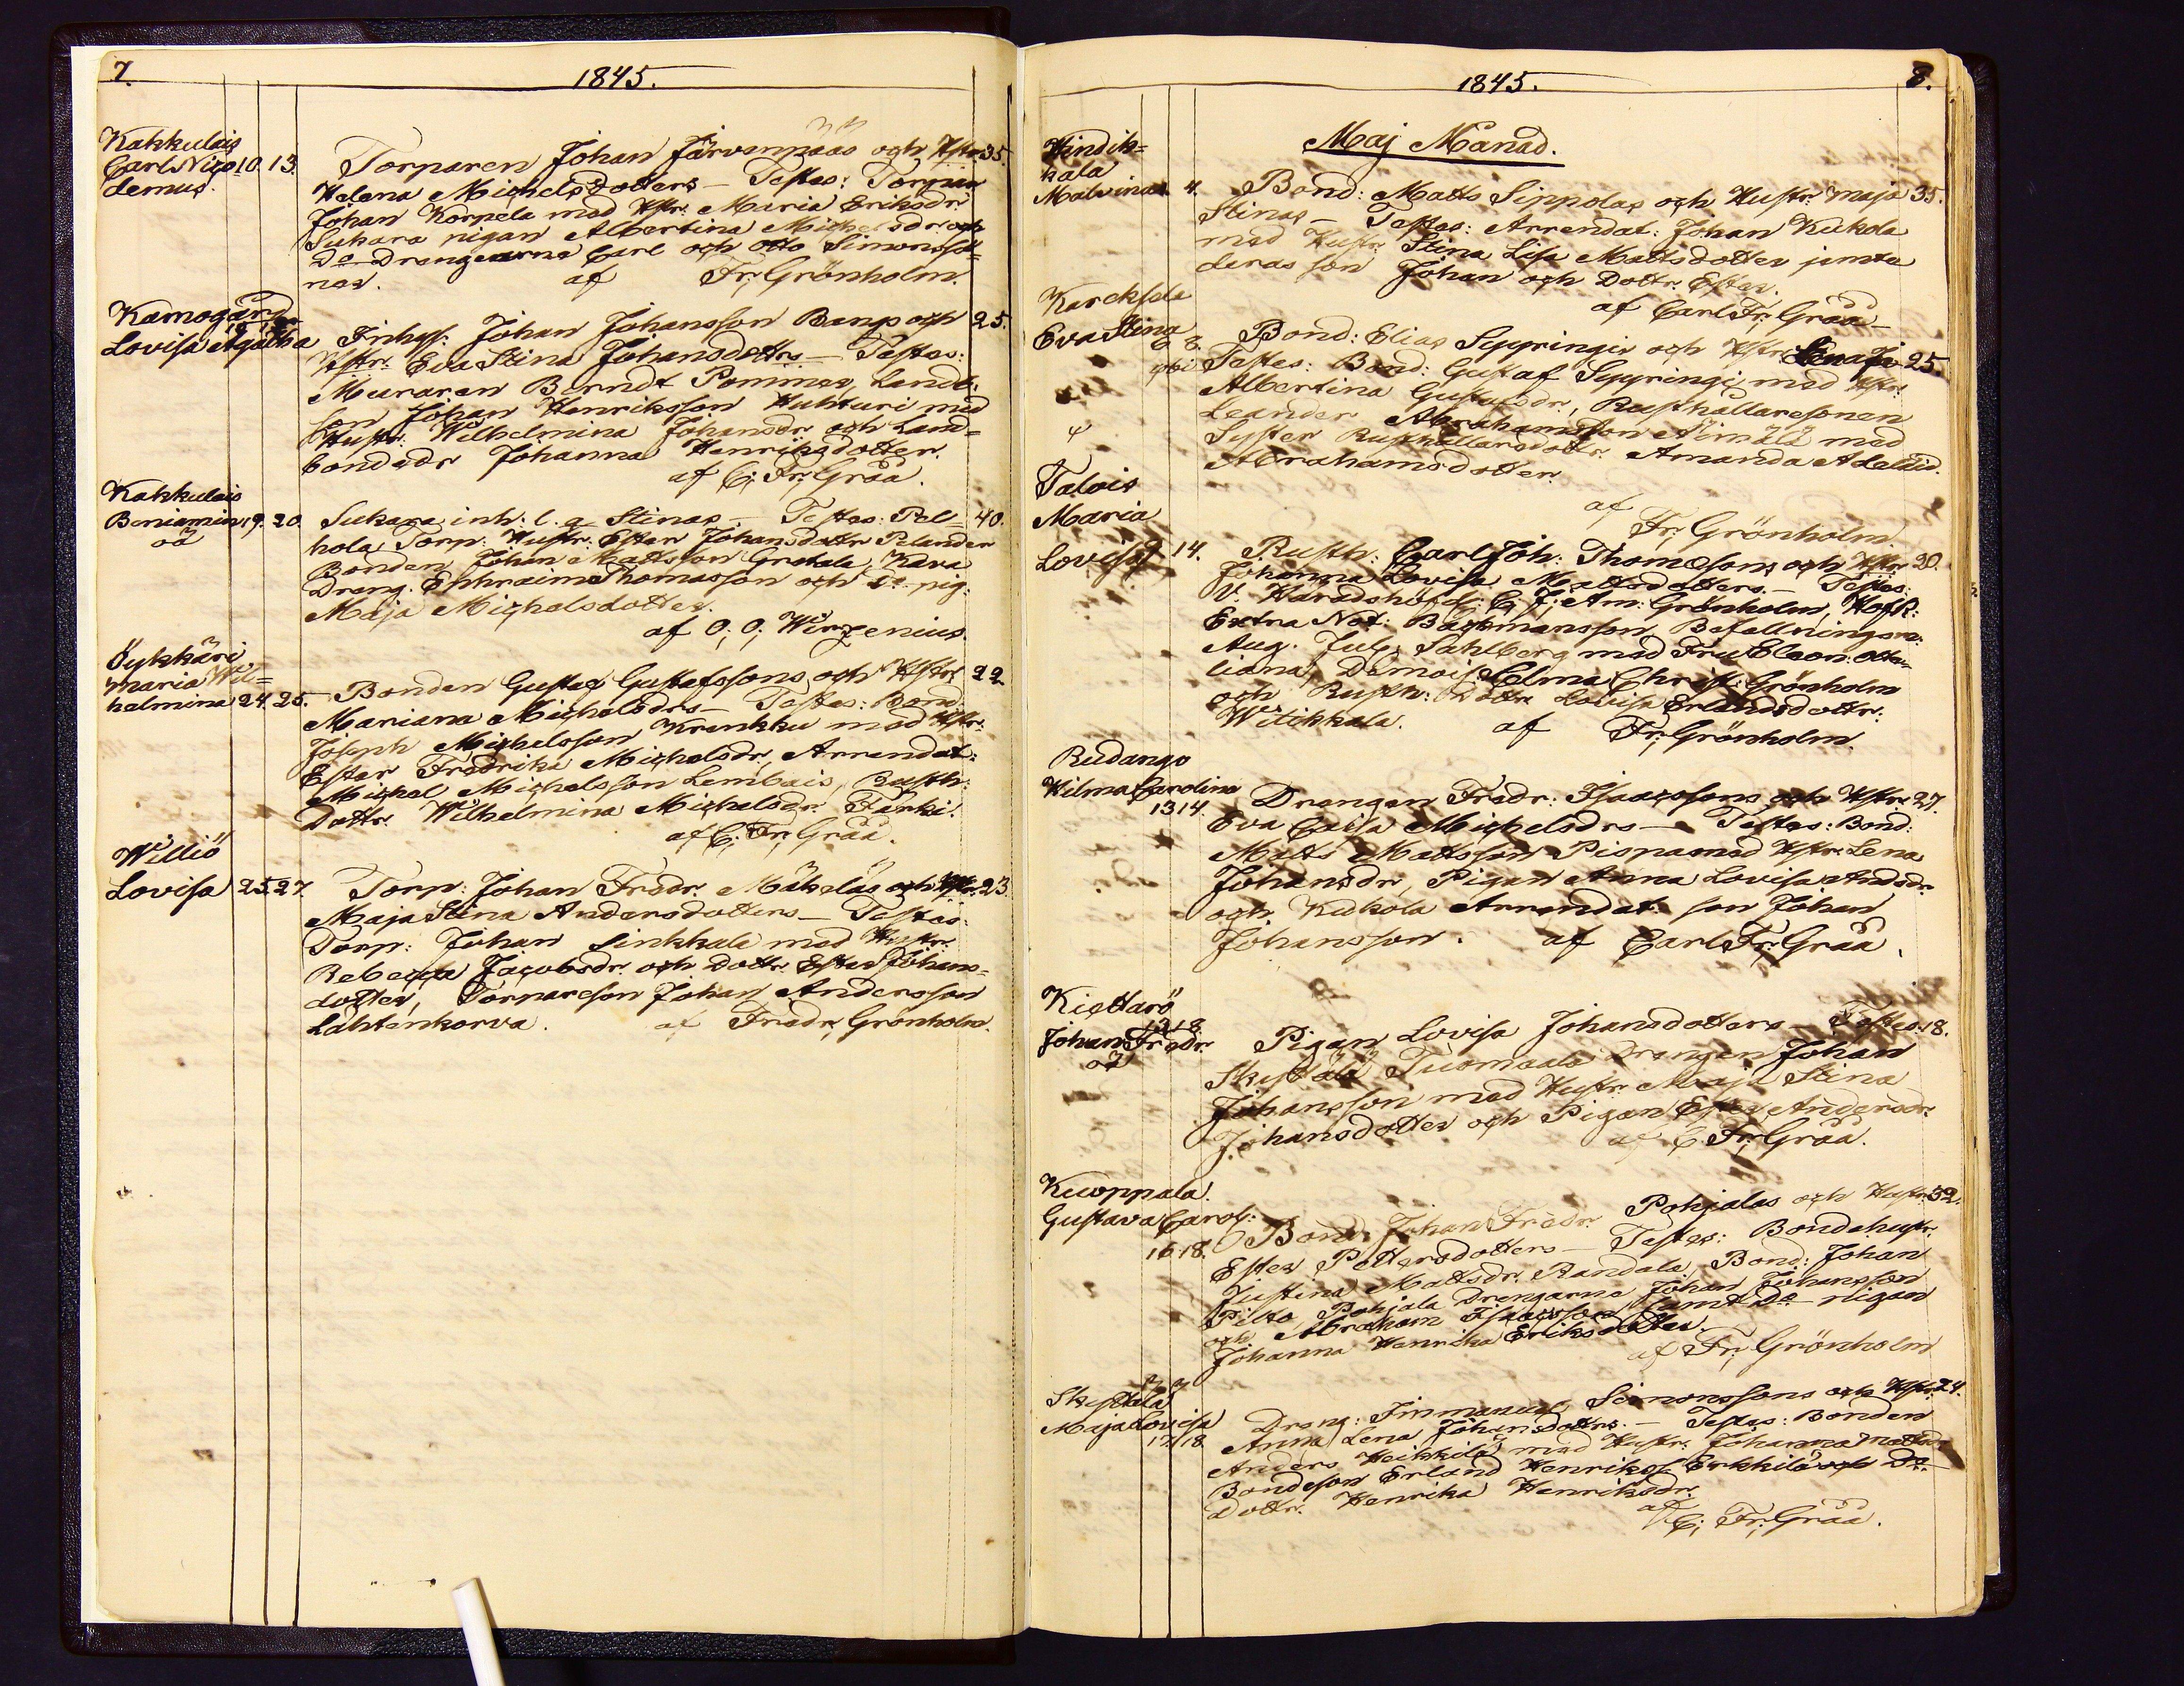 7.
1845.
Kakkulais
Carl Nico 10. 13.
demus.
Torparen Johan Järvenpääs och Hstr. 35.
Helena Michelsdotters — Testes: Torpar.
Johan Korpela med Hstr. Maria Eriksdr
Sukara pigan Albertina Michelsdr och
Do Drengarne Carl och Otto Simonssö-
nar. af Fr; Grönholm.
Kamogård
Lovisa Agatha
Inhys: Johan Johansson Bangs och 25.
Hstr. Eva Stina Johansdottrs — Testes:
Muraren Berndt Pommer, Landb.
son Johan Henriksson Huhturi med
Hustr. Wilhelmina Johansdr och Land=
bondedr Johanna Henriksdotter.
af C; Fr; Gråå.
Kakkulais
Beniamin 19. 20.
oä
Sukara inh: l. q. Stinas — Testes: Pel= 40.
hola Torp: Hustr. Ester Johansdottr Pelander
Bonden Johan Mattsson Grotala, Kara
Dreng. Ephraim Thomasson och do pig:
Maja Michelsdotter.
af O; O; Wirzenius.
Öykkäri
Maria Wil=
helmina 24. 25.
Bonden Gustaf Gustafssons och Hstr. 22
Mariana Michelsdrs — Testes: Bond.
Joseph Michelsson Krankku med Hstr.
Ester Fredrika Michelsdr, Arrendat:
Michel Michelsson Lembais, Rusth:
Dottr. Wilhelmina Michelsdr Ferki.
af C; Fr; Gråå.
Williö
Lovisa 25. 27.
Torp: Johan Fredr. Mäkeläs och Hstr. 23.
Maja Stina Andersdotters — Testes:
Torp: Johan Sinkkala med Hustr.
Rebecca Jacobsdr. och Dottr. Ester Johans=
dotter, Torpareson Johan Andersson
Lähtenkorva. af Fredr; Grönholm.
1845.
8.
Maj Månad.
Hindik=
kala
Malvina 4.
Bond: Matts Sippolas och Hustr. Maja 35.
Stinas — Testes: Arrendat: Johan Kukola
med Hustr. Stina Lisa Mattsdotter jemte
deras son Johan och Dottr. Ester.
af Carl Fr: Gråå
Karcksela
Eva Stina
Bond: Elias Syyringis och Hstr. 25.
Testes: Bond: Gustaf Syyringi med Hstr.
Albertina Gustafsdr, Rusthållaresonen
Leander Abrahamsson Äimälä med
Syster Rusthållarsdottr. Amanda Adelaid.
Abrahamsdotter.
af
Fr: Grönholm.
Talois
Maria
Lovisa 9 14.
Rusth: Carl Joh: Thomæsons och Hstr. 20.
Johanna Lovisa Mattsdotters. — Testes:
V. Häradshöfd: C; J; Am: Grönholm, Hofr:
Extra Not: Backmansson Befallningsm:
Aug. Jul; Sahlberg med Fru Eleon: Otte-
liana, Demois Selma Christ: Grönholm
och Rusth: Dottr Lovisa Erlandsdottr:
Witikkala. af Fr; Grönholm.
Rudango
Wilma Carolina
13 14.
Drengen Fredr: Isaacssons och Hstr. 27.
Eva Caisa Michelsdrs — Testes: Bond:
Matts Mattsson Pispa med Hstr. Lena
Johansdr, Pigan Anna Lovisa Andsdr.
och Kukola Arrendat: son Johan
Johansson. af Carl Fr: Gråå.
Kiettarö
13 18.
Johan Fredr.
oä
Pigan Lovisa Johansdotters — Testes: 18.
Skyttälä Tuomaala Drengen Johan
Johansson med Hustr. Maja Stina
Johansdotter och Pigan Ester Andersdr.
af C Fr; Gråå.
Kuoppala.
Gustava Carol:
16 18.
Bond: Johan Fredr. Pohjalas och Hustr. 32.
Ester Pettersdotters — Testes: Bondehustr.
Justina Mattsdr. Randala, Bond: Johan
Pilto, Pohjala Drengarne Johan Johansson
och Abraham Isaacsson samt Do pigan
Johanna Henrika Eriksdotter.
af Fr; Grönholm
Skyttälä
Maja Lovisa
17 18.
Dreng: Immanuel Simonssons och Hstr. 24.
Anna Lena Johansdottrs. — Testes: Bonden
Anders Heikkilä med Hustr. Johanna Mattsdr.
Bondeson Erland Henrikss. Erkkilä och Do
Dottr. Henrika Henriksdr.
af
C; Fr; Gråå.